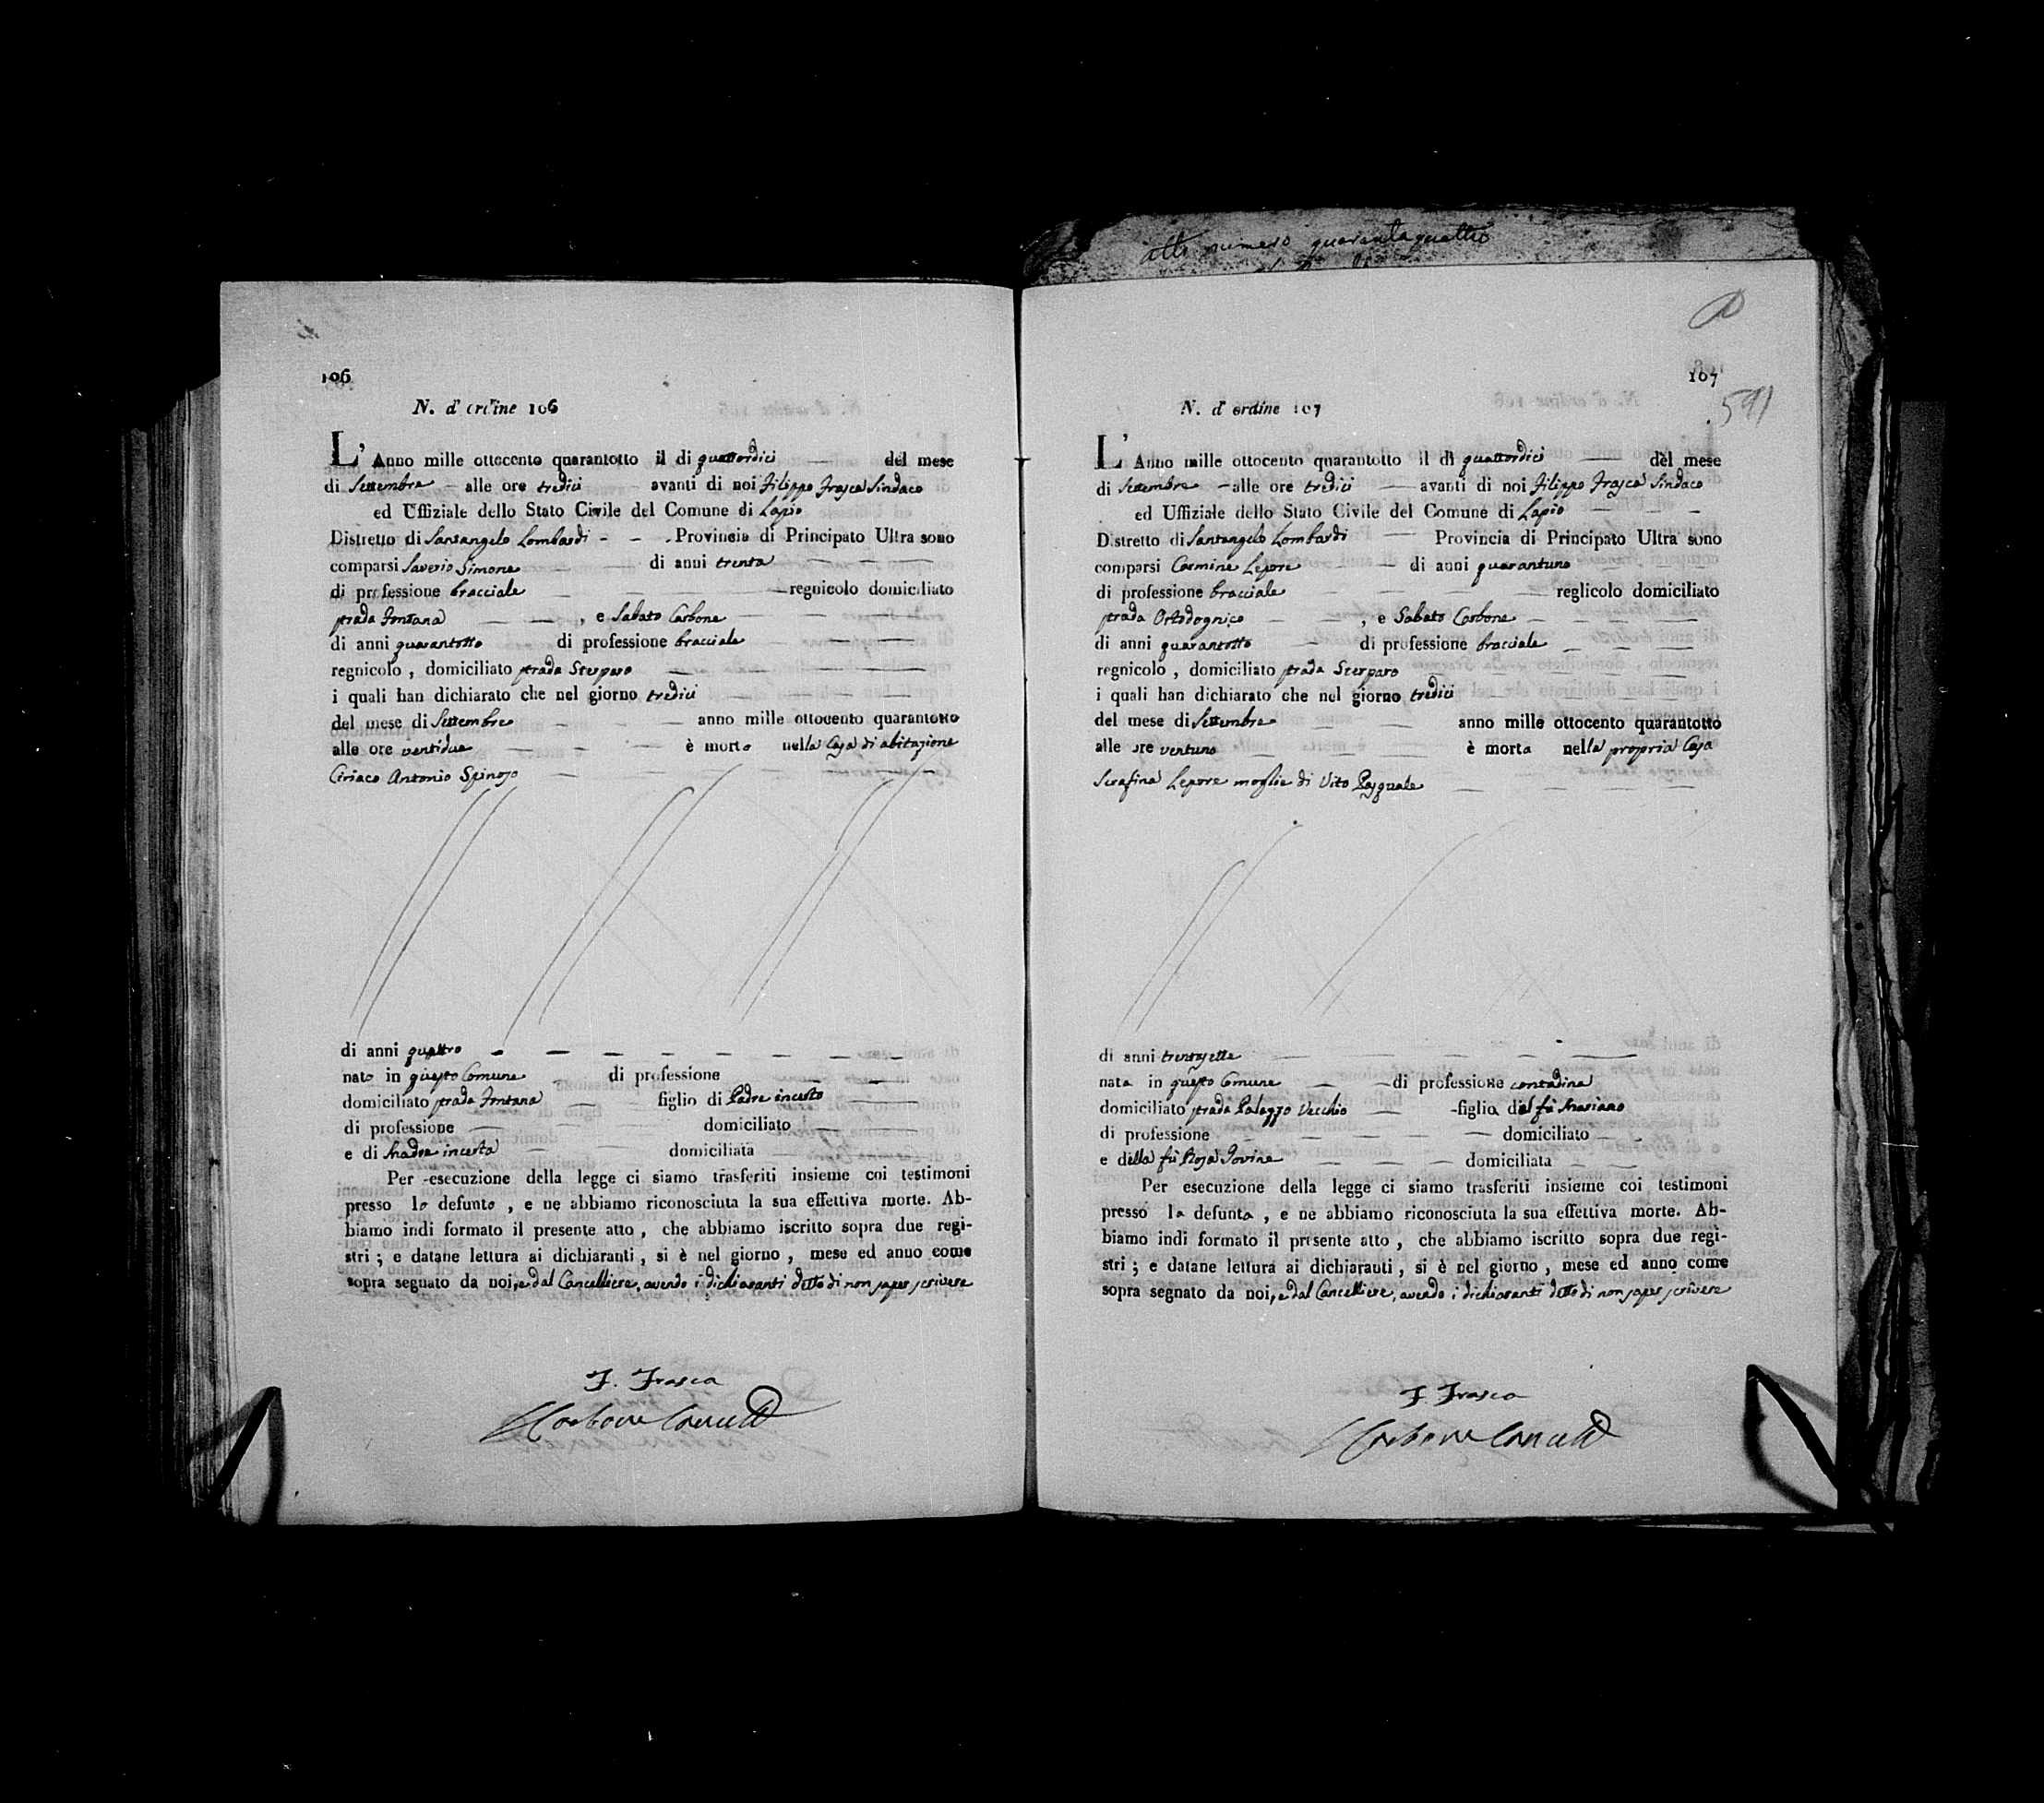 atto numero quarantaquattro
106
N. d'ordine 106
L'Anno mille ottocento quarantotto il di quattordici del mese
di Settembre alle ore tredici avanti di noi Filippo Frasca Sindaco
ed Uffiziale dello Stato Civile del Comune di Lapio
Distretto di Santangelo Lombardi Provincia di Principato Ultra sono
comparsi Saverio Simone di anni trenta
di professione bracciale regnicolo domiciliato
strada Fontana , e Sabato Carbone
di anni quarantotto di professione bracciale
regnicolo , domiciliato strada Sterparo
i quali han dichiarato che nel giorno tredici
del mese di Settembre anno mille ottocento quarantotto
alle ore ventidue è morto nella Casa di abitazione
Ciriaco Antonio Spinoso
di anni quattro
nato in questo Comune di professione
domiciliato strada Fontana figlio di Padre incerto
di professione domiciliato
e di Madre incerta domiciliata
Per esecuzione della legge ci siamo trasferiti insieme coi testimoni
presso lo defunto , e ne abbiamo riconosciuta la sua effettiva morte. Ab-
biamo indi formato il presente atto , che abbiamo iscritto sopra due regi-
stri ; e datane lettura ai dichiaranti , si è nel giorno , mese ed anno come
sopra segnato da noi, e dal Cancelliere, avendo i dichiaranti detto di non saper scrivere
F. Frasca
Carbone Cancell
107
591
N. d'ordine 107
L'Anno mille ottocento quarantotto il di quattordici del mese
di Settembre alle ore tredici avanti di noi Filippo Frasca Sindaco
ed Uffiziale dello Stato Civile del Comune di Lapio
Distretto di Santangelo Lombardi Provincia di Principato Ultra sono
comparsi Carmine Lepore di anni quarantuno
di professione bracciale reglicolo domiciliato
strada Ortodognico , e Sabato Carbone
di anni quarantotto di professione bracciale
regnicolo , domiciliato strada Sterparo
i quali han dichiarato che nel giorno tredici
del mese di Settembre anno mille ottocento quarantotto
alle ore ventuno è morta nella propria Casa
Serafina Lepore moglie di Vito Pasquale
di anni trentasette
nata in questo Comune di professione contadina
domiciliato strada Palazzo Vecchio figlia del fù Mariano
di professione domiciliato
e della fù Rosa Iovine domiciliata
Per esecuzione della legge ci siamo trasferiti insieme coi testimoni
presso la defunta , e ne abbiamo riconosciuta la sua effettiva morte. Ab-
biamo indi formato il presente atto , che abbiamo iscritto sopra due regi-
stri ; e datane lettura ai dichiaranti , si è nel giorno , mese ed anno come
sopra segnato da noi, e dal Cancelliere, avendo i dichiaranti detto di non saper scrivere
F Frasca
Carbone Cancell